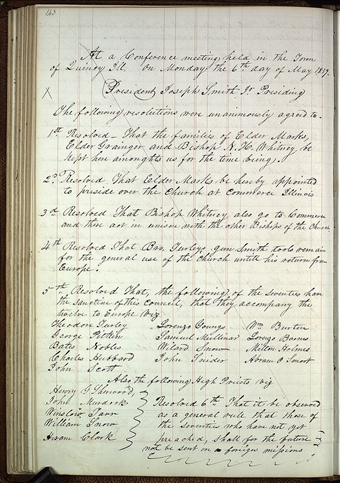 At a Conference meeting held in the Town
of Quincy Ill. on Monday the 6th day of May 1839.
President Joseph Smith Jr Presiding
The following resolutions were unanimously agreed to.
1st Resolved That the families of Elder Marks,
Elder Granger and Bishop N. K. Whitney be
kept here amongst us for the time being.
2nd Resolved That Elder Marks be hereby appointed
to preside over the Church at Commerce Illinois
3rd Resolved That Bishop Whitney also go to Commerce
and there act in unison with the other Bishops of the Church
4th Resolved That Bro. Turley's gun Smith tools remain
for the general use of the Church until his return from
Europe.
5th Resolved That, the following of the Seventies have
the sanction of this Council, that they accompany the
twelve to Europe viz
Theodore Turley Lorenzo Youngs Wm Burton
George Pitkin Samuel Mulliner Lorenzo Barnes
Bates Nobles Milton Holmes
Charles Hubbard John Snider Abram O Smoot
John Scott
Also the following High Priests viz
Henry G Sherwood,
John Murdock Resolved 6th That it be observed
Winslow Farr as a general rule that those of
William Snow the Seventies who have not yet
Hiram Clark preached, shall for the future
not be sent on foreign missions